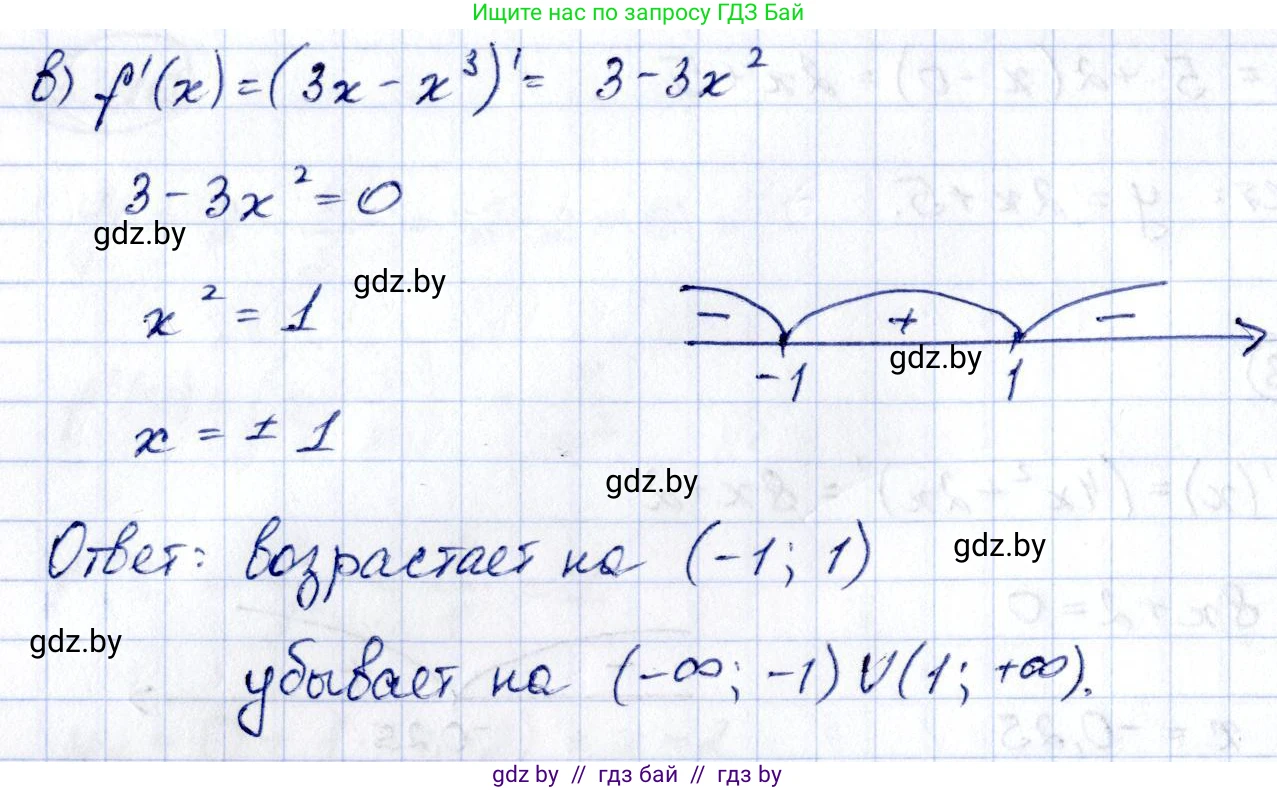 Ищите нас по запросу ГДЗ Бай
в) f'(x) = (3x - x³)' = 3 - 3x²
3 - 3x² = 0
gdz.by
gdz.by
x² = 1
- + -
gdz.by
-1 1
x = ± 1
gdz.by
Ответ: возрастает на (-1; 1)
gdz.by
gdz.by
убывает на (-∞; -1) ∪ (1; +∞).
gdz by // гдз бай // гдз by